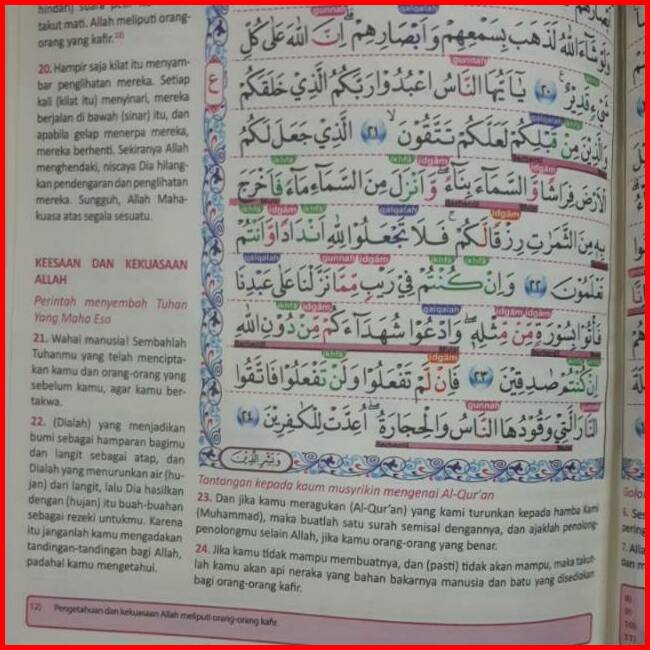 hindari) suara petir itu karena
takut mati. Allah meliputi orang-
orang yang kafir.¹²⁾
20. Hampir saja kilat itu menyam-
bar penglihatan mereka. Setiap
kali (kilat itu) menyinari, mereka
berjalan di bawah (sinar) itu, dan
apabila gelap menerpa mereka,
mereka berhenti. Sekiranya Allah
menghendaki, niscaya Dia hilang-
kan pendengaran dan penglihatan
mereka. Sungguh, Allah Maha-
kuasa atas segala sesuatu.
KEESAAN DAN KEKUASAAN
ALLAH
Perintah menyembah Tuhan
Yang Maha Esa
21. Wahai manusia! Sembahlah
Tuhanmu yang telah mencipta-
kan kamu dan orang-orang yang
sebelum kamu, agar kamu ber-
takwa.
22. (Dialah) yang menjadikan
bumi sebagai hamparan bagimu
dan langit sebagai atap, dan
Dialah yang menurunkan air (hu-
jan) dari langit, lalu Dia hasilkan
dengan (hujan) itu buah-buahan
sebagai rezeki untukmu. Karena
itu janganlah kamu mengadakan
tandingan-tandingan bagi Allah,
padahal kamu mengetahui.
وَلَوْ شَاءَ اللّٰهُ لَذَهَبَ بِسَمْعِهِمْ وَاَبْصَارِهِمْ ۗ اِنَّ اللّٰهَ عَلٰى كُلِّ
شَيْءٍ قَدِيْرٌ ࣖ ٢٠ يٰٓاَيُّهَا النَّاسُ اعْبُدُوْا رَبَّكُمُ الَّذِيْ خَلَقَكُمْ
وَالَّذِيْنَ مِنْ قَبْلِكُمْ لَعَلَّكُمْ تَتَّقُوْنَۙ ٢١ الَّذِيْ جَعَلَ لَكُمُ
الْاَرْضَ فِرَاشًا وَّالسَّمَاءَ بِنَاءً ۖ وَّاَنْزَلَ مِنَ السَّمَاءِ مَاءً فَاَخْرَجَ
بِهٖ مِنَ الثَّمَرٰتِ رِزْقًا لَّكُمْ ۚ فَلَا تَجْعَلُوْا لِلّٰهِ اَنْدَادًا وَّاَنْتُمْ
تَعْلَمُوْنَ ٢٢ وَاِنْ كُنْتُمْ فِيْ رَيْبٍ مِّمَّا نَزَّلْنَا عَلٰى عَبْدِنَا
فَأْتُوْا بِسُوْرَةٍ مِّنْ مِّثْلِهٖ ۖ وَادْعُوْا شُهَدَاءَكُمْ مِّنْ دُوْنِ اللّٰهِ
اِنْ كُنْتُمْ صٰدِقِيْنَ ٢٣ فَاِنْ لَّمْ تَفْعَلُوْا وَلَنْ تَفْعَلُوْا فَاتَّقُوا
النَّارَ الَّتِيْ وَقُوْدُهَا النَّاسُ وَالْحِجَارَةُ ۖ اُعِدَّتْ لِلْكٰفِرِيْنَ ٢٤
وَبَشِّرِ الَّذِيْنَ
Tantangan kepada kaum musyrikin mengenai Al-Qur'an
23. Dan jika kamu meragukan (Al-Qur'an) yang kami turunkan kepada hamba Kami
(Muhammad), maka buatlah satu surah semisal dengannya, dan ajaklah penolong-
penolongmu selain Allah, jika kamu orang-orang yang benar.
24. Jika kamu tidak mampu membuatnya, dan (pasti) tidak akan mampu, maka takut-
lah kamu akan api neraka yang bahan bakarnya manusia dan batu yang disediakan
bagi orang-orang kafir.
12) Pengetahuan dan kekuasaan Allah meliputi orang-orang kafir.